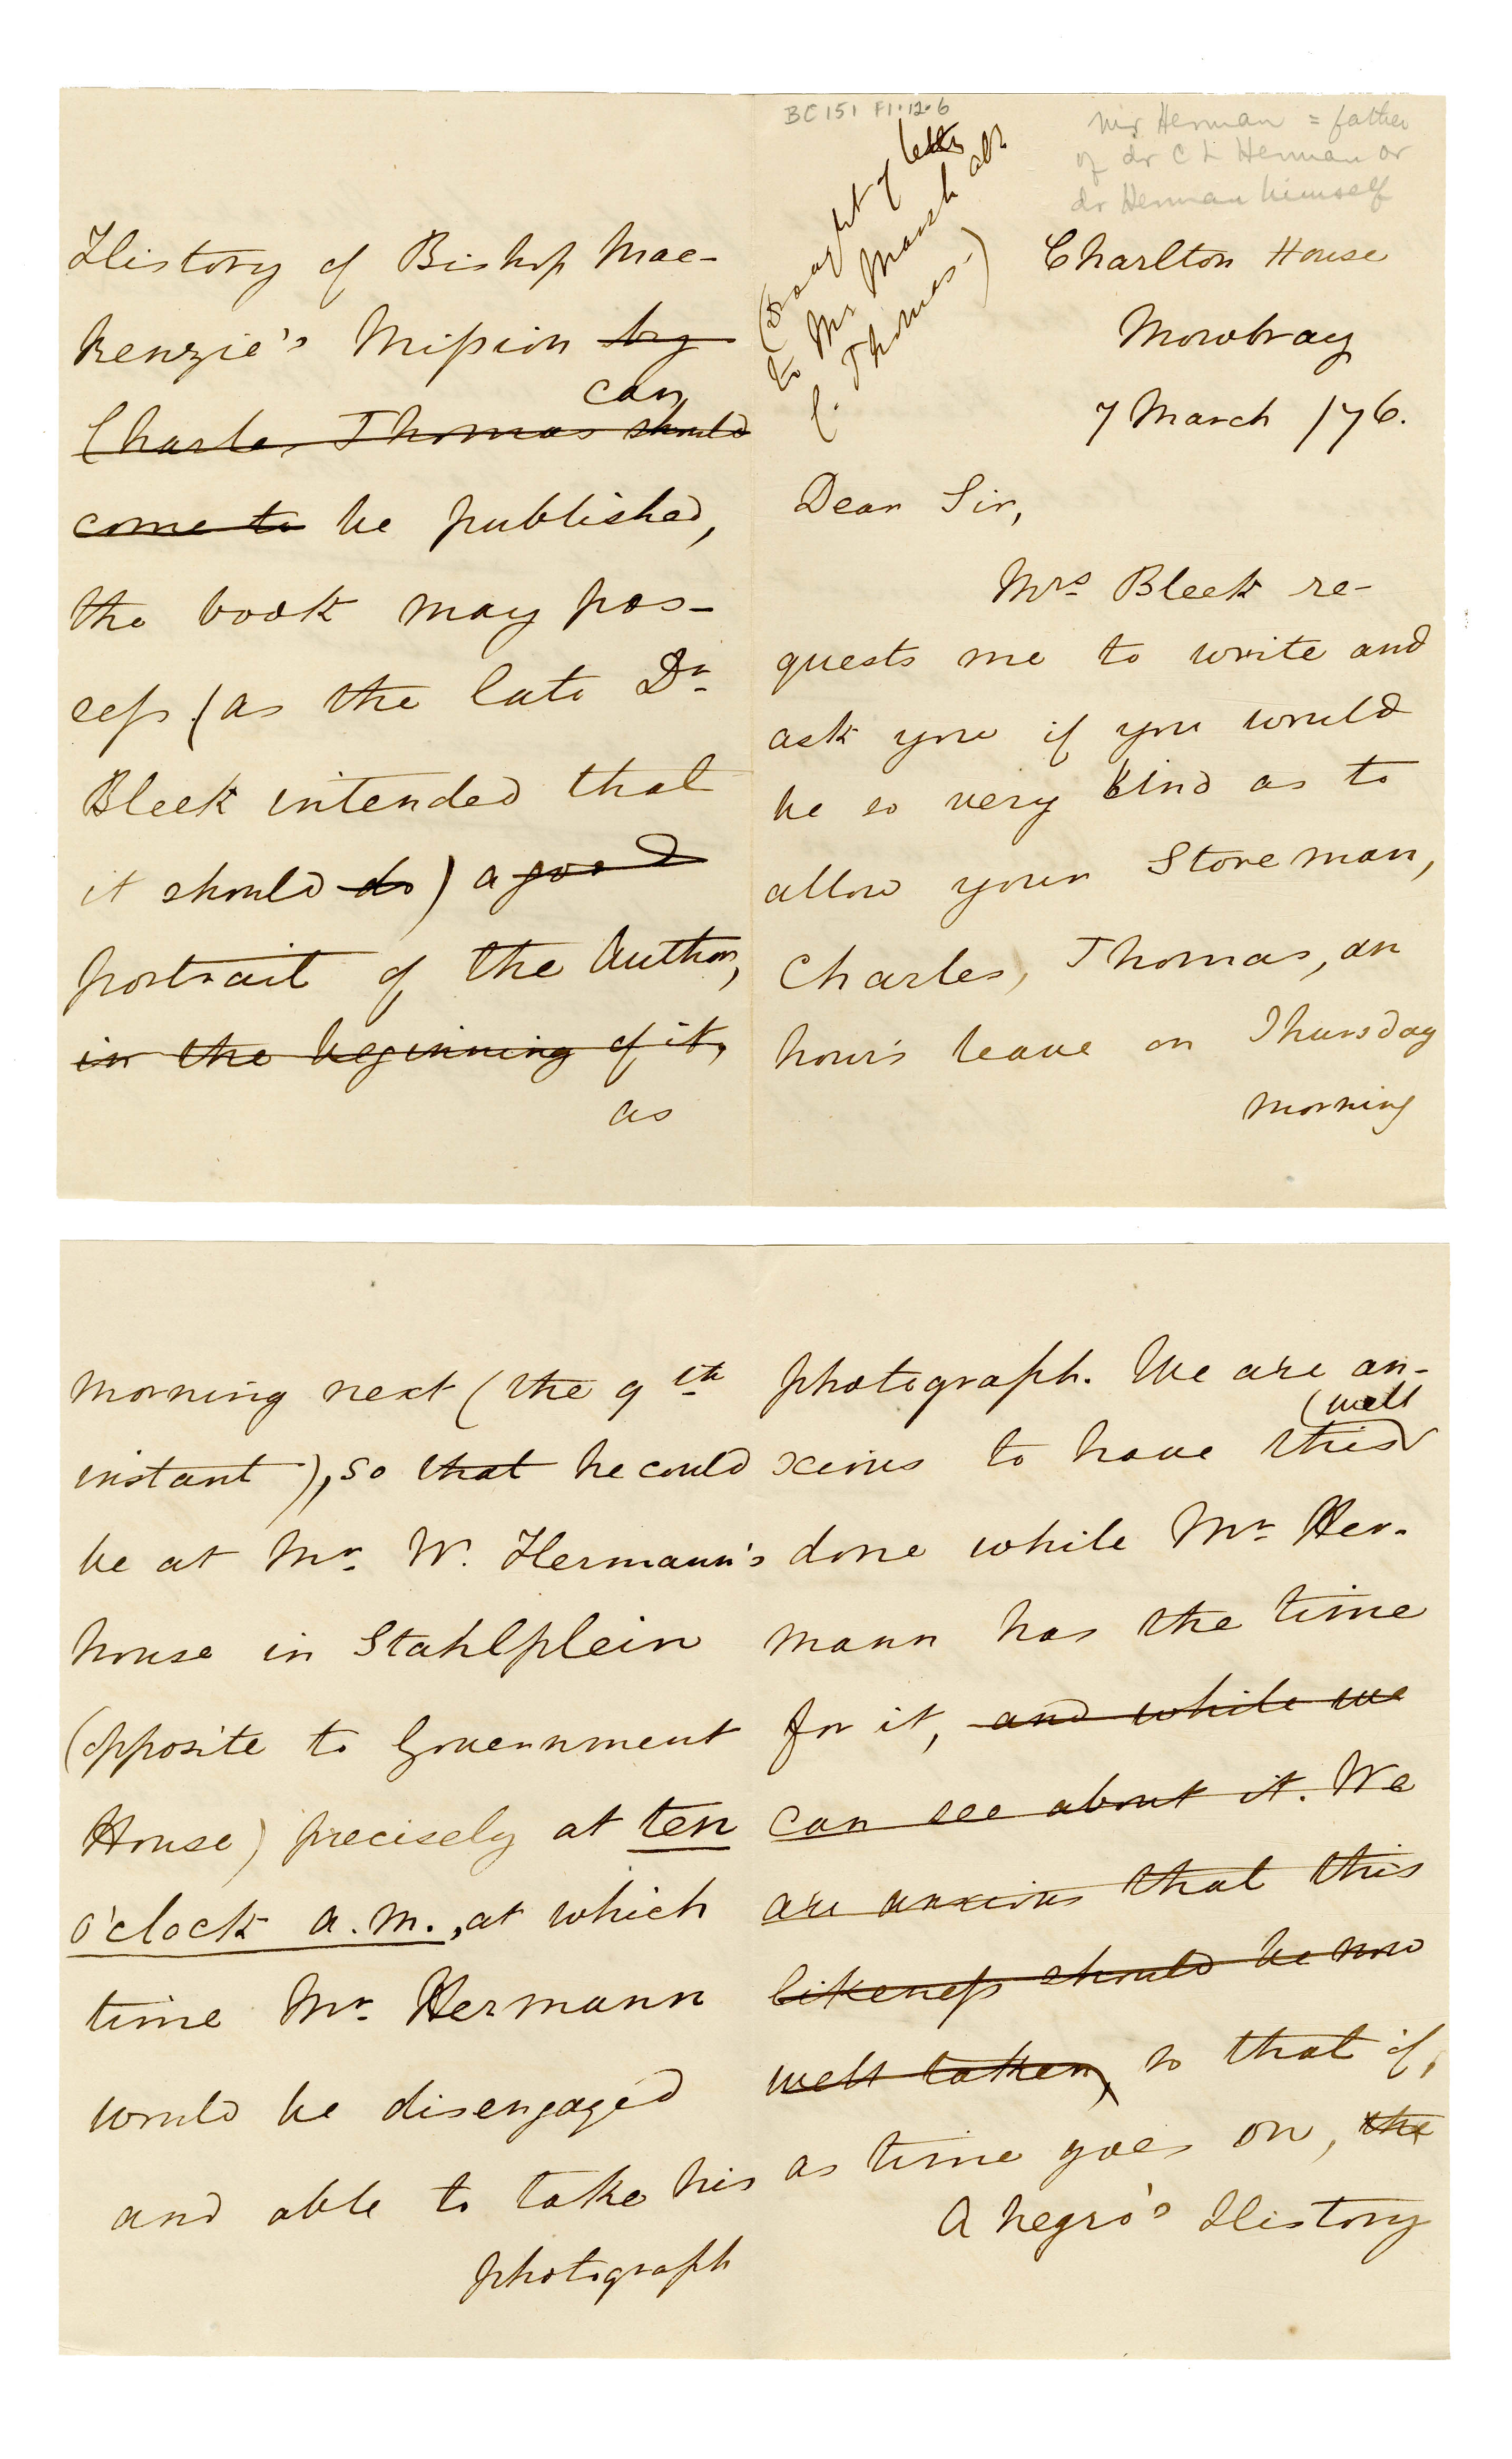 BC 151 F1.12.6
Mr Herman = father
of dr C L Herman or
dr Herman himself
(Draught of letter
to Mr Marsh abt
C. Thomas.)
Charlton House
Mowbray
7 March /76.
Dear Sir,
Mrs Bleek re-
quests me to write and
ask you if you would
be so very kind as to
allow your Storeman,
Charles, Thomas, an
hour's leave on Thursday
morning
morning next (the 9th
instant), so that he could
be at Mr. W. Hermann's
house in Stahlplein
(opposite to Government
House) precisely at ten
o'clock a.m., at which
time Mr. Hermann
would be disengaged
and able to take his
photograph
photograph. We are an-
(well
xious to have this
done while Mr. Her-
mann has the time
for it, and while we
can see about it. We
are anxious that this
likeness should be now
well taken, so that if,
as time goes on, the
A negro's History
History of Bishop Mac-
kenzie's Mission by
can
Charles Thomas should
come to be published,
the book may pos-
sess (as the late Dr.
Bleek intended that
it should do) a good
portrait of the Author,
in the beginning of it,
as